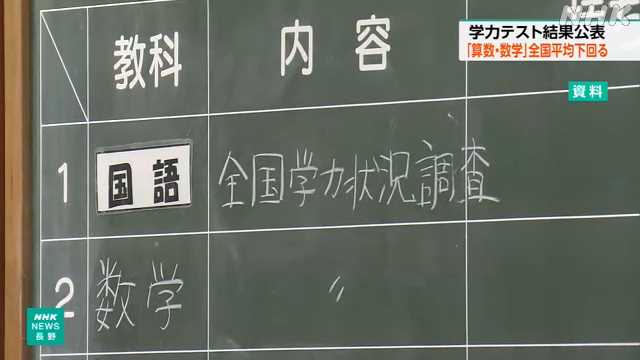 NHK
学力テスト結果公表
「算数・数学」全国平均下回る
資料
教科 内容
1 国語 全国学力状況調査
2 数学 〃
NHK
NEWS
長野